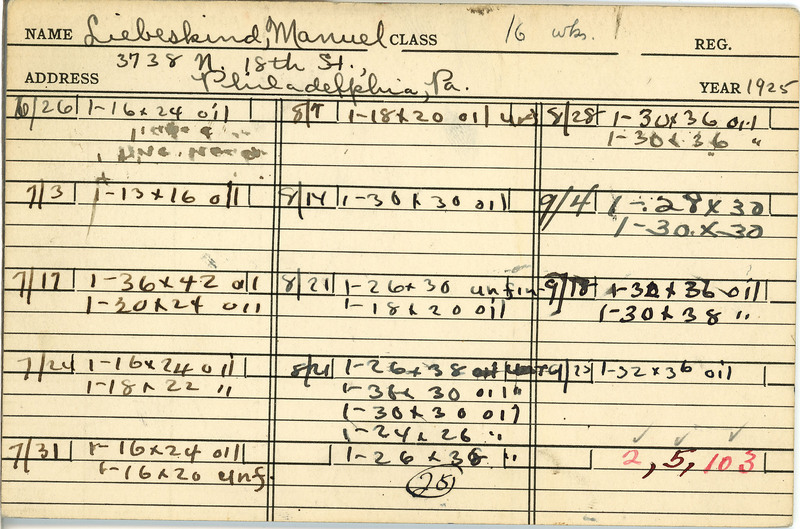 NAME Liebeskind, Manuel CLASS 16 wks. REG.
ADDRESS 3738 N. 18th St.,
Philadelphia, Pa. YEAR 1925
6/26 1-16x24 oil
7/3 1-13x16 oil
7/17 1-36x42 oil
1-20x24 oil
7/24 1-16x24 oil
1-18x22 "
7/31 1-16x24 oil
1-16x20 unf.
8/7 1-18x20 oil unf
8/14 1-30x30 oil
8/21 1-26x30 unfin
1-18x20 oil
8/21 1-26x38
1-36x30 oil "
1-30x30 oil
1-24x26 "
1-26x38 "
25
8/28 1-30x36 oil
1-30x36 "
9/4 1-28x30
1-30x30
9/18 1-30x36 oil
1-30x38 "
9/25 1-32x36 oil
2, 5, 103